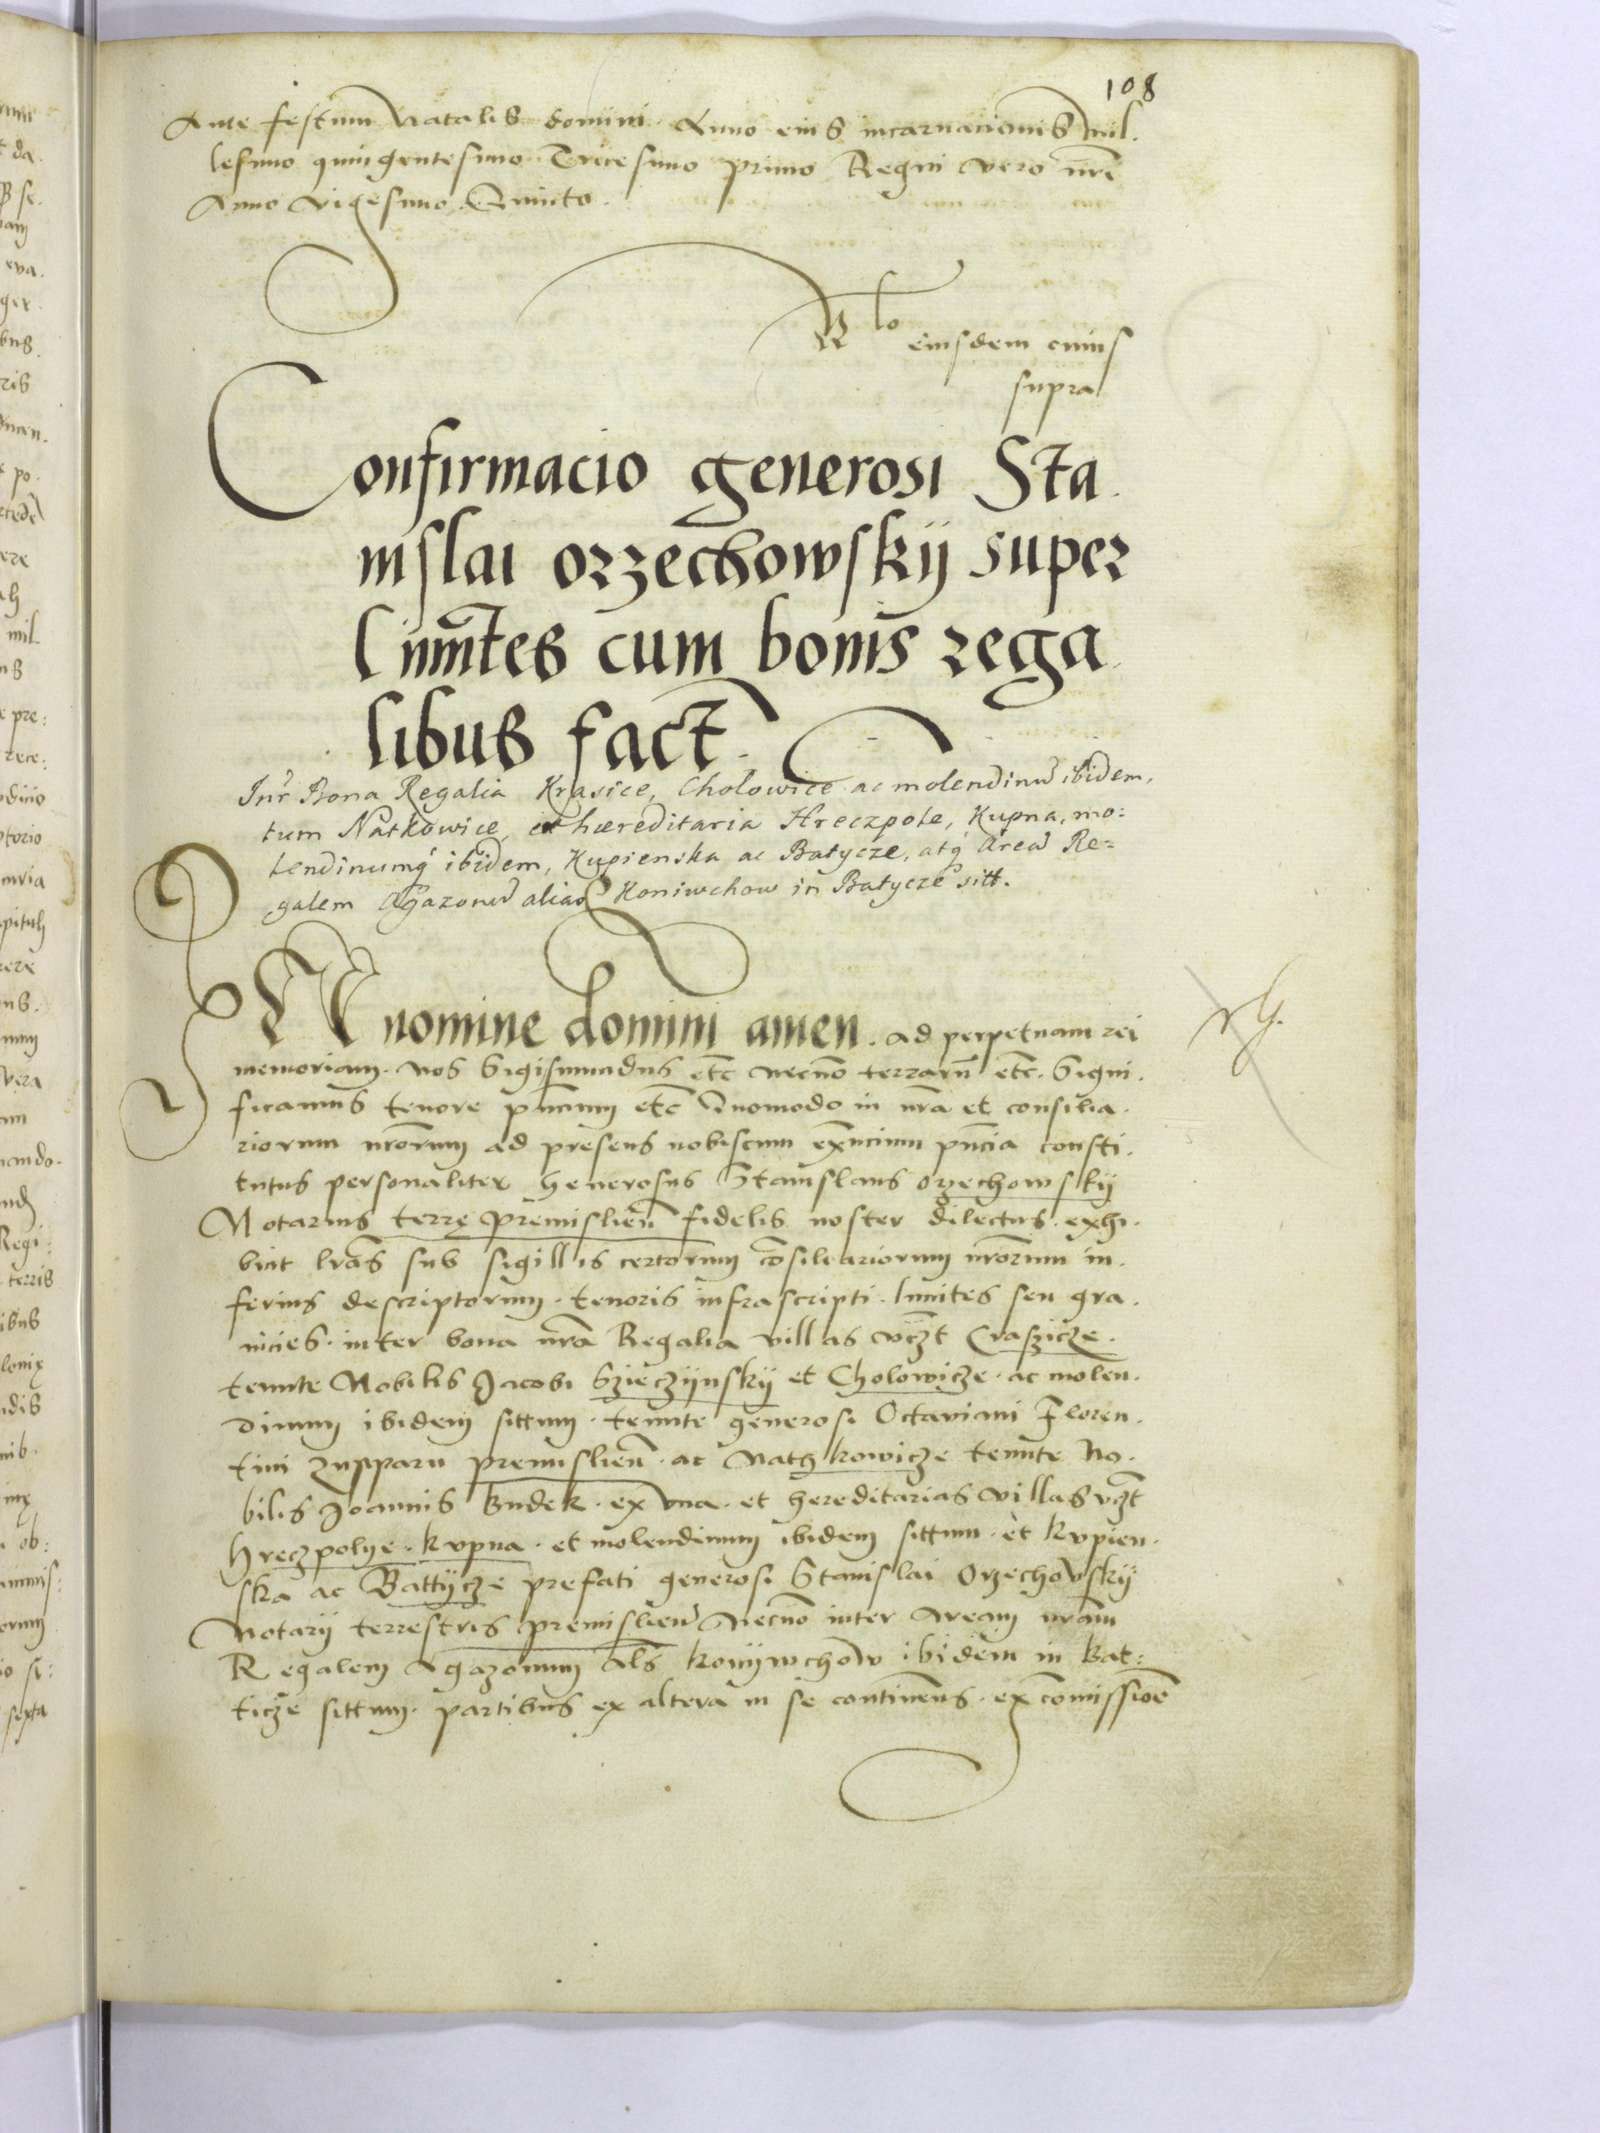 108
Ante festum Natalis domini Anno eius incarnacionis mil.
lesimo quingentesimo Tricesimo primo Regni vero nrĩ
Anno vigesimo Quinto.
Rlo eiusdem cuius
supra
Confirmacio generosi Sta.
nislai orzechowskij super
limĩtes cum bonis rega.
libus fact.
Intr Bona Regalia Krasice, Cholowice ac molendinũ ibidem,
tum Natkowice, et hæreditaria Hreczpole, Kupna, mo:
lendinumq́ ibidem, Kupienska ac Batycze, atq́ areã Re=
galem Agazonũ alias Koniwchow in Batycze sitt.
IN nomine domini amen. ad perpetuam rei
memoriam. Nos Sigismundus etc̃ necnõ terrarũ etc̃. Signi.
ficamus tenore pñtium etc̃ Quomodo in nr̃a et consilia.
riorum nr̃orum ad presens nobiscum exñcium pñcia consti.
tutus personaliter Generosus Stanislaus Orzechowskij
Notarius terrę premislieñ fidelis noster dilectus. exhi.
buit lrãs sub sigillis certorum cõsiliariorum nr̃orum in.
ferius descriptorum. tenoris infrascripti. limites seu gra.
nicies. inter bona nr̃a Regalia villas vcz̃t Craszicze.
tenute Nobilis Jacobi Szieczijnskij et Cholowicze. ac molen.
dinum ibidem sittum. tenute generosi Octaviani Floren.
tini Zupparii premislieñ. ac Nathkowicze tenute No.
bilis Joannis Budek. ex vna. et hereditarias villas vcz̃t
Hreczpolye. kvpna. et molendinum ibidem sittum. et kvpien.
ska ac Battijcze prefati generosi Stanislai Orzechowskij
Notarij terrestris premislieñ Necnõ inter Aream nr̃am
Regalem Agazonum al̃s konijwchow ibidem in Bat:
ticze sittum. partibus ex altera in se continens. ex comissioẽ